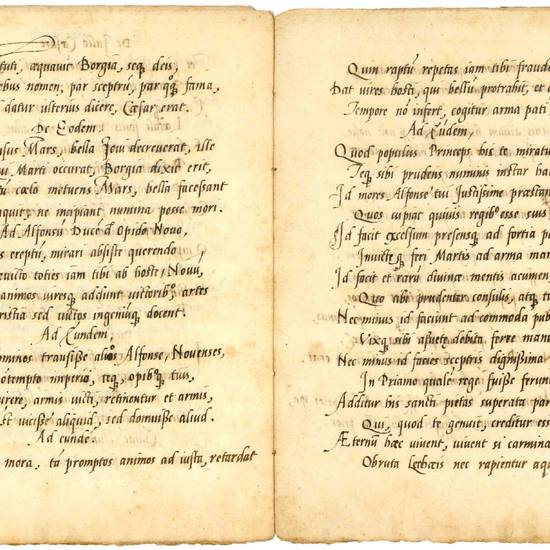 tuti, aequavit Borgia, seq, deis,
ebus nomen, par sceptrū, par q, fama,
datur ulterius dicere, Caesar erat.
De Eodem
sus Mars, bella Ioui decreuerat, ille
ui Marti occurat, Borgia dixit erit,
tu coelo metuens Mars, bella facessant
nquit, ne incipiant numina posse mori.
Ad Alfonsū Ducē d Opido Nouo,
s ereptū, mirari absiste querendo
euicto toties iam tibi ab hoste, Nouū,
animos uiresq, addunt uictorib, artes
ristia sed uictos ingeniūq, docent.
Ad Eundem,
minos transisse alios Alfonse, Nouenses,
ōtempto imperio, teq, opibq, tuis,
armis uicti, retinentur et armis,
st uicisse aliquid, sed domuisse aliud.
Ad eundē
mora, tā promptos animos ad iusta, retardat
Quin raptū repetas iam tibi fraude
Dat uires hosti, qui bellū protrahit, et
Tempore nō infert, cogitur arma pati
Ad Eūdem,
Quod populus Princeps hic te miratur
Teq, sibi prudens numinis instar ha
Id mores Alfonse tui Iustissime praestan
Quos cupiat quiuis regib, esse suis
Id facit excelsum praesensq, ad fortia pe
Inuictūq, feri Martis ad arma man
Id facit et rarū diuinae mentis acumen
Quo tibi prudenter consulis, atq, t
Nec minus id faciunt ad commoda pub
Vixq, sibi asueto debita forte manu
Nec minus id facies sceptris dignissima
In Priamo quale rege fuisse ferun
Additur his sancti pietas superata par
Qui, quod te genuit, creditur ess
AEternū haec uiuent, uiuent si carmina
Obruta Lethaeis nec rapientur aqu